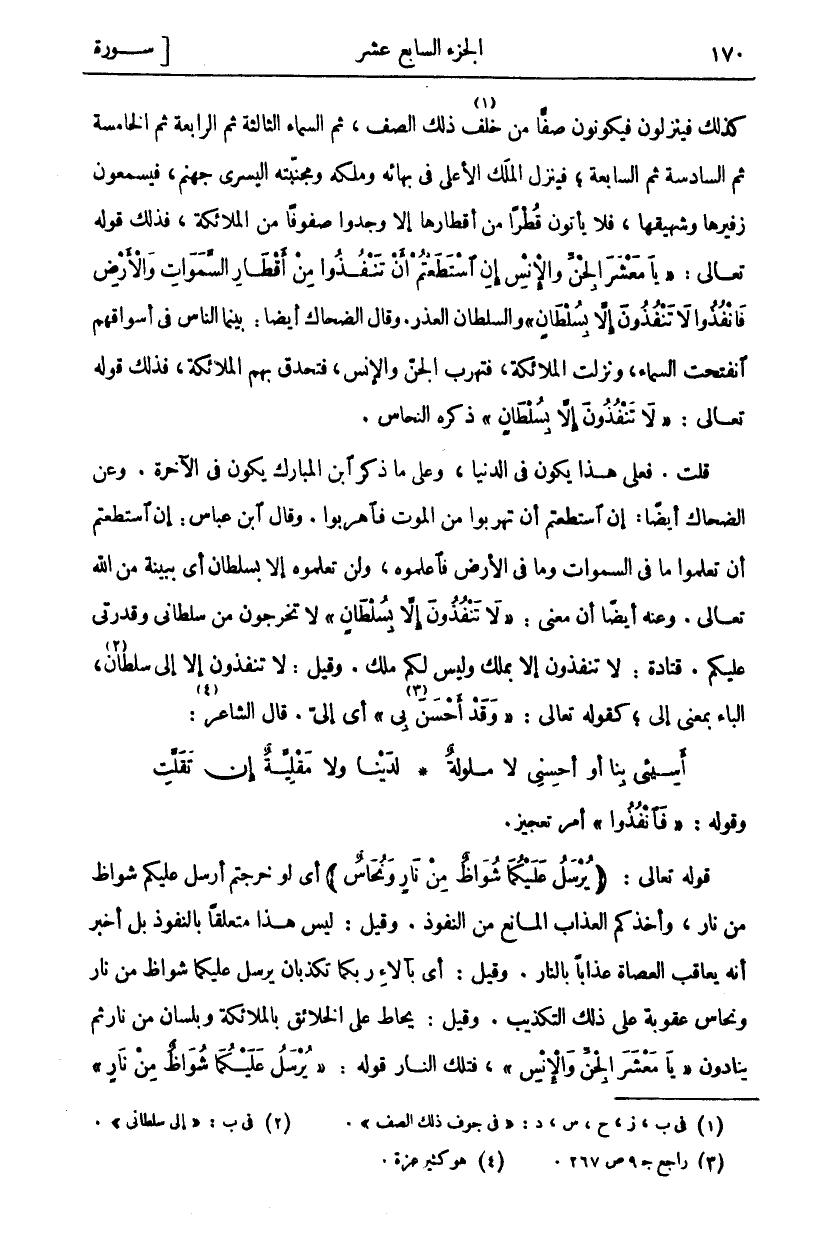 ١٧٠ الجزء السابع عشر [ ســـورة
كذلك فينزلون فيكونون صفًّا من خلف ذلك الصف (١) ، ثم السماء الثالثة ثم الرابعة ثم الخامسة
ثم السادسة ثم السابعة ؛ فينزل الملَك الأعلى فى بهائه وملكه ومجنّبته اليسرى جهنم ، فيسمعون
زفيرها وشهيقها ، فلا يأتون قُطْرًا من أقطارها إلا وجدوا صفوفًا من الملائكة ، فذلك قوله
تعـالى : « يَا مَعْشَرَ الْجِنِّ وَالْإِنْسِ إِنِ ٱسْتَطَعْتُمْ أَنْ تَنْفُـذُوا مِنْ أَقْطَـارِ السَّمَوَاتِ وَالْأَرْضِ
فَانْفُذُوا لَا تَنْفُذُونَ إِلَّا بِسُلْطَانٍ» والسلطان العذر. وقال الضحاك أيضا : بينما الناس فى أسواقهم
ٱنفتحت السماء، ونزلت الملائكة، فتهرب الجنّ والإنس، فتحدق بهم الملائكة، فذلك قوله
تعـالى : « لَا تَنْفُذُونَ إِلَّا بِسُلْطَانٍ » ذكره النحاس .
قلت . فعلى هـذا يكون فى الدنيا ، وعلى ما ذكر ٱبن المبارك يكون فى الآخرة . وعن
الضحاك أيضًا : إن ٱستطعتم أن تهربوا من الموت فٱهربوا . وقال ٱبن عباس : إن ٱستطعتم
أن تعلموا ما فى السموات وما فى الأرض فٱعلموه ، ولن تعلموه إلا بسلطان أى ببينة من الله
تعـالى . وعنه أيضًا أن معنى : « لَا تَنْفُذُونَ إِلَّا بِسُلْطَانٍ » لا تخرجون من سلطانى وقدرتى
عليكم . قتادة : لا تنفذون إلا بملك وليس لكم ملك . وقيل : لا تنفذون إلا إلى سلطان (٢)،
الباء بمعنى إلى ؛ كقوله تعالى : « وَقَدْ أَحْسَنَ بِى (٣) » أى إلىّ . قال الشاعر (٤) :
أَسِيئِى بِنا أو أحسِنِى لا مـلولةٌ * لدَيْنـا ولا مَقْلِيَّـةٌ إن تَقَلَّتِ
وقوله : « فَٱنْفُذُوا » أمر تعجيز.
قوله تعالى : ﴿ يُرْسَلُ عَلَيْكُمَا شُوَاظٌ مِنْ نَارٍ وَنُحَاسٌ ﴾ أى لو خرجتم أرسل عليكم شواظ
من نار ، وأخذكم العذاب المـانع من النفوذ . وقيل : ليس هـذا متعلقاً بالنفوذ بل أخبر
أنه يعاقب العصاة عذاباً بالنار . وقيل : أى بآلاءِ ربكما تكذبان يرسل عليكما شواظ من نار
ونحاس عقوبة على ذلك التكذيب . وقيل : يحاط على الخلائق بالملائكة وبلسان من نار ثم
ينادون « يَا مَعْشَرَ الْجِنِّ وَالْإِنْسِ » ، فتلك النـار قوله : « يُرْسَلُ عَلَيْكُمَا شُوَاظٌ مِنْ نَارٍ »
(١) فى ب ، ز ، ح ، س ، د : « فى جوف ذلك الصف » . (٢) فى ب : « إلى سلطانى » .
(٣) راجع جـ ٩ ص ٢٦٧ . (٤) هو كثير عزة .